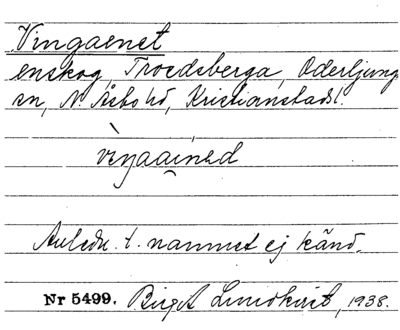 Vingaenet
enskog, Troedsberga, Oderljunga
sn, N. Åsbo hd, Kristianstads l.
Anledn. t. namnet ej känd.
Nr 5499. Birgit Lundkvist, 1938.